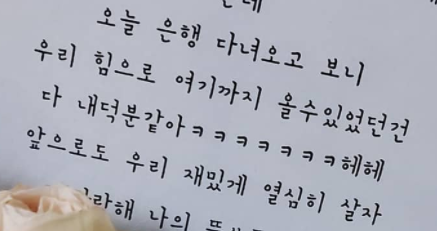 오늘 은행 다녀오고 보니
우리 힘으로 여기까지 올수있었던건
다 내덕분같아ㅋㅋㅋㅋㅋㅋㅋ헤헤
앞으로도 우리 재밌게 열심히 살자
나의